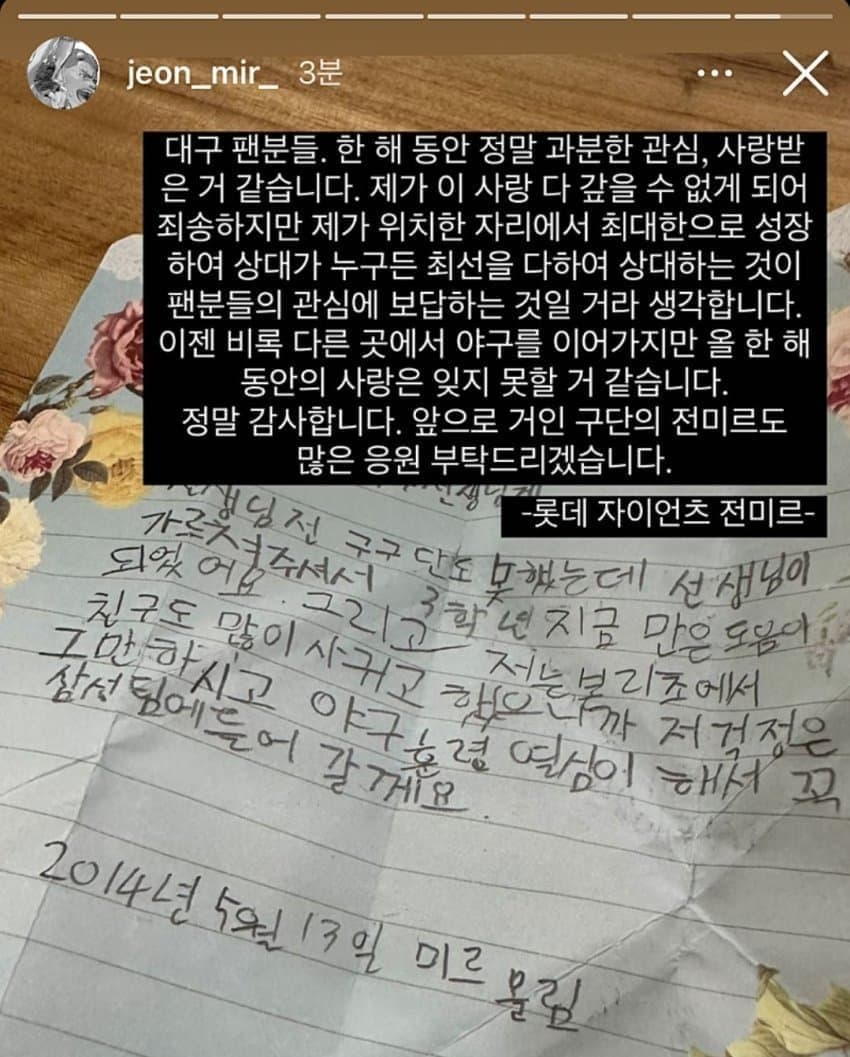 jeon_mir_ 3분
대구 팬분들. 한 해 동안 정말 과분한 관심, 사랑받
은 거 같습니다. 제가 이 사랑 다 갚을 수 없게 되어
죄송하지만 제가 위치한 자리에서 최대한으로 성장
하여 상대가 누구든 최선을 다하여 상대하는 것이
팬분들의 관심에 보답하는 것일 거라 생각합니다.
이젠 비록 다른 곳에서 야구를 이어가지만 올 한 해
동안의 사랑은 잊지 못할 거 같습니다.
정말 감사합니다. 앞으로 거인 구단의 전미르도
많은 응원 부탁드리겠습니다.
-롯데 자이언츠 전미르-
선생님께
선생님 전 구구단도 못했는데 선생님이
가르쳐주셔서 3학년 지금 만은 도움이
되었어요. 그리고 저는 본리초에서
친구도 많이 사귀고 했으니까 저 걱정은
그만 하시고 야구 훈령 열심이 해서 꼭
삼성팀에 들어 갈게요.
2014년 5월 13일 미르 올림